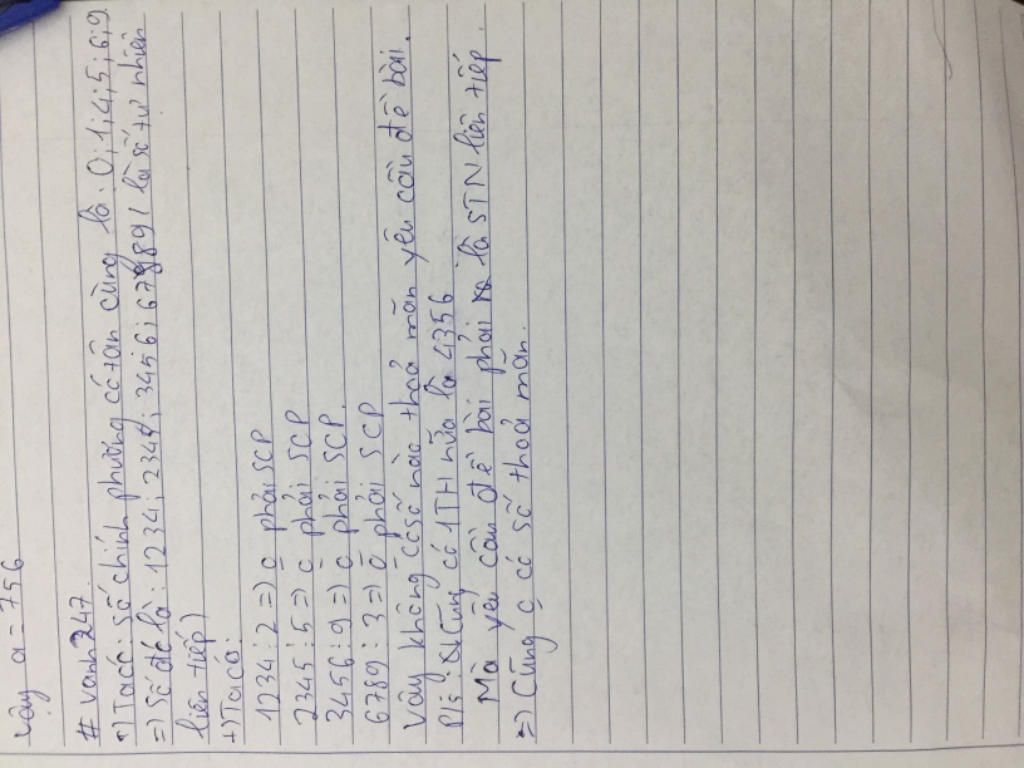 Vậy a = 756
# Vanh247.
+) Ta có: Số chính phương có tận cùng là: 0; 1; 4; 5; 6; 9
=> Số đó là: 1234; 2345; 3456; 6789 ( là số tự nhiên
liên tiếp)
+) Ta có:
1234 : 2 => o phải SCP
2345 : 5 => o phải SCP
3456 : 9 => o phải SCP.
6789 : 3 => o phải SCP
Vậy không có số nào thoả mãn yêu cầu đề bài.
P/s: Cũng có 1TH nữa là 4356
Mà yêu cầu đề bài phải là STN liên tiếp.
=> Cũng ç có số thoả mãn.